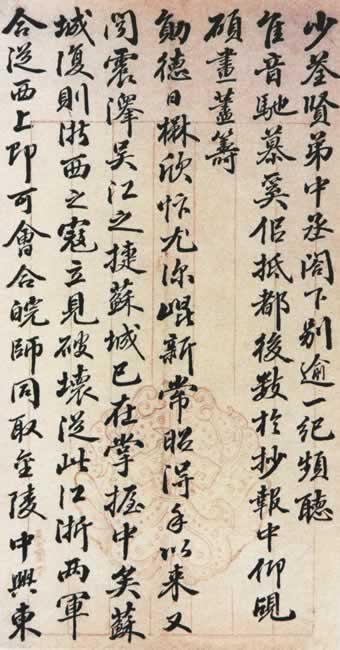 少荃賢弟中丞閣下别逾一紀頻聽
佳音馳慕奚佀抵都後數於抄報中仰覘
碩畫藎籌
勛德日楙欣忭尤深崐新常昭得手以來又
聞震澤吳江之捷蘇城已在掌握中矣蘇
城復則浙西之寇立見破壞從此江浙兩軍
合從西上即可會合皖師同取金陵中興東